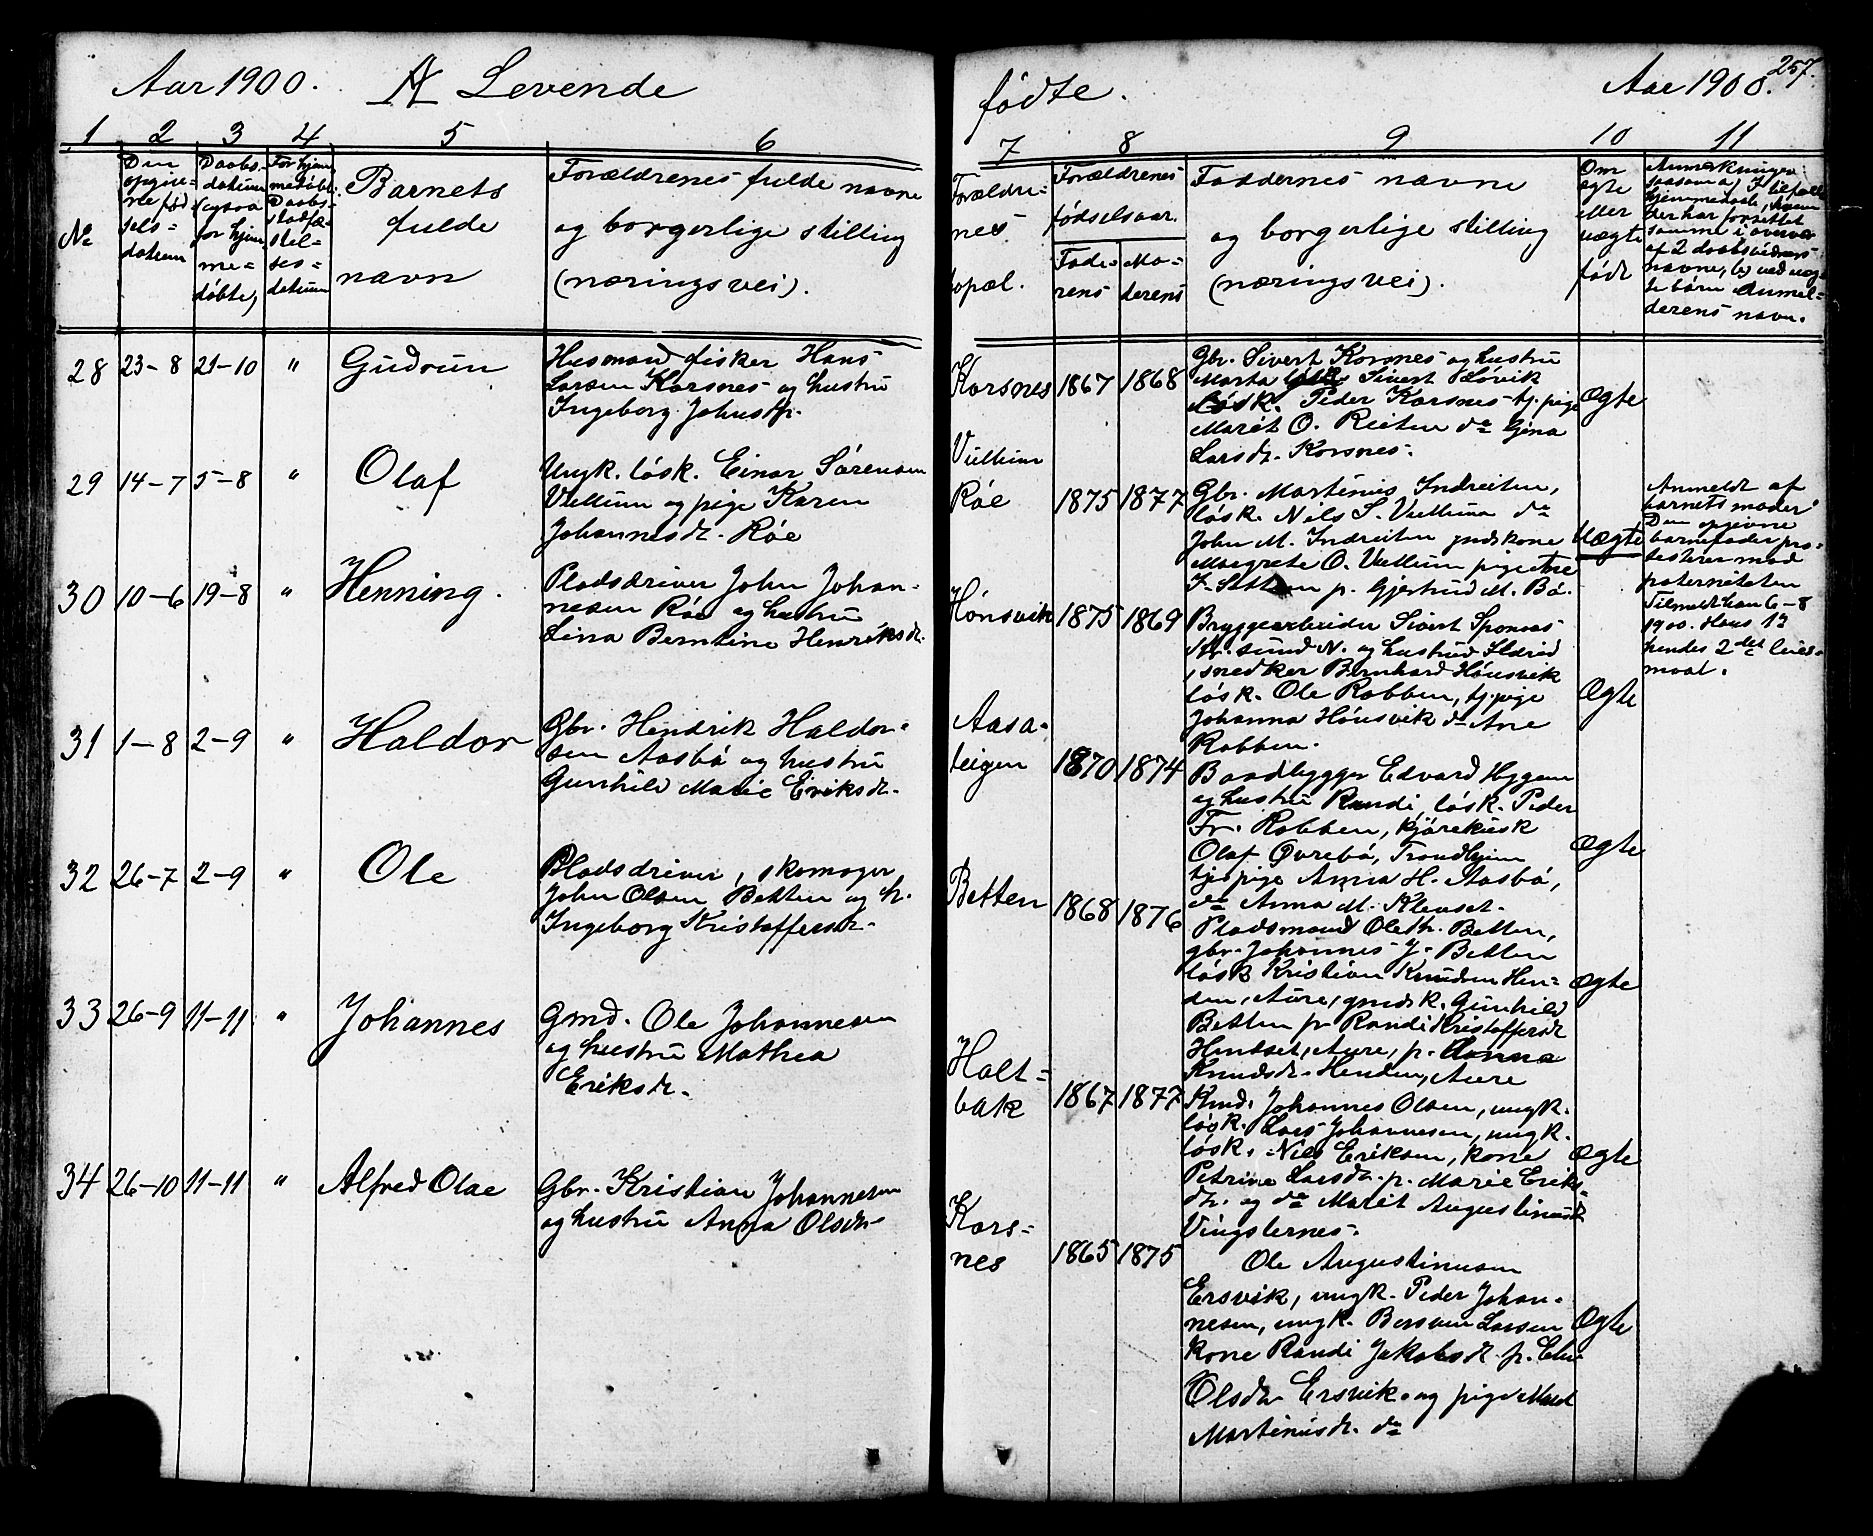 Aar 1900. A Levende
1 2 3 4 5 6
No
Den opgivne fødselsdatum
Daabsdatum
Barnets fulde navn
Forældrenes fulde navne
og borgerlige stilling
(næringsvei).
28 23-8 21-10 " Gudrun
Husmand fisker Hans
Larsen Korsnes og hustru
Ingeborg Johnsdtr.
29 14-7 5-8 " Olaf
Ungk. løsk. Einar Sørensen
Vullum og pige Karen
Johannesdr. Røe
30 10-6 19-8 " Henning.
Pladsdriver John Johan-
nesen Røe og hustru
Lina Berntine Henriksdr.
31 1-8 2-9 " Haldor
Gbr. Hendrik Haldor-
sen Aasbø og hustru
Gunhild Marie Eriksdr.
32 26-7 2-9 " Ole
Pladsdriver, skomager
John Olsen Betten og h.
Ingeborg Kristoffersdr.
33 26-9 11-11 " Johannes
Gmd. Ole Johannesen
og hustru Mathea
Eriksdr.
34 26-10 11-11 " Alfred Olae
Gbr. Kristian Johannesen
og hustru Anna Olsdr.
fødte. Aar 1900. 257.
7 8 9 10 11
Forældre-
nes
bopæl.
Forældrenes
fødselsaar.
Fade-
rens
Mo-
derens
Faddernes navne
og borgerlige stilling
(næringsvei).
Om
ægte
eller
uægte
født
Korsnes 1867 1868
Gbr. Sivert Korsnes og hustru
Marta Sivert Løvik
løsk. Peder Korsnes tj. pige
Marit O. Reiten do Gjøna
Larsdr. Korsnes.
Ægte
Vullum
Røe 1875 1877
Gbr. Martinus Indreiten,
løsk. Nils S. Vullum do
John M. Indreiten gmdskone
Margrete O. Vullum pige
p. Gjertrud M. Bø.
Uægte
Anmeldt af
barnets moder
Den opgivne
barnefader pro-
testerer mod
paterniteten
Tilmeldt han 6-8
1900. Hans 1ste
hendes 2det leier-
maal.
Hønsvik 1875 1869
Bryggearbeider Sivert Sponaas
Kr.sund N. og hustru Ildrid
, snedker Bernhard Hønsvik
løsk. Ole Robben, tj. pige
Johanna Hønsvik do Ane
Robben.
Ægte
Aasa-
teigen 1870 1874
Baadbygger Edvard Hyggen
og hustru Randi, løsk. Peder
Fr. Robben, kjørekusk
Olaf Øvrebø, Trondhjem
tj. pige Anna H. Aasbø,
do Anna M. Klevset.
Ægte
Betten 1868 1876
Pladsmand Ole Betten,
gbr. Johannes J. Betten
løsk. Kristian Knudsen Hen-
den, Aure, gmdsk. Gunhild
Betten p. Randi Kristoffersdr
Hendset, Aure, p. Anna
Knudsdr. Henden, Aure
Ægte
Holt-
bak 1867 1877
Kmd. Johannes Olsen, ungk.
løsk. Lars Johannesen, ungk.
løsk. Nils Eriksen, kone
Petrine Larsdr. p. Marie Eriks-
dr. og do Marit Augustinusdr
Vingsternes.
Ægte
Kors-
nes 1865 1875
Ole Augustinusen
Ersvik, ungk. Peder Johan-
nesen, ungk. Larsen
kone Randi Jakobsdr. p. Elen
Olsdr Ersvik og pige
Martinusdr. do
Ægte